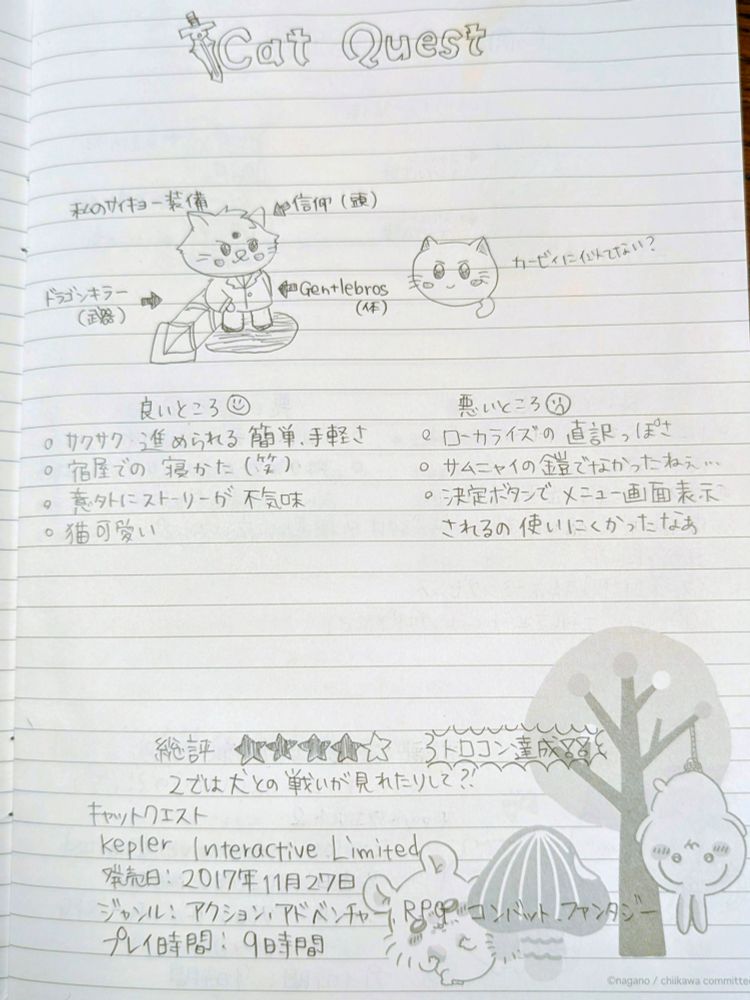 Cat Quest
私のサイキョー装備
信仰(頭)
カービィに似てない?
ドラゴンキラー
(武器)
Gentlebros
(体)
良いところ
○ サクサク進められる簡単、手軽さ
○ 宿屋での寝かた(笑)
○ 意外にストーリーが不気味
○ 猫可愛い
悪いところ
○ ローカライズの直訳っぽさ
○ サムニャイの鎧でなかったねぇ…
○ 決定ボタンでメニュー画面表示
されるの使いにくかったなぁ
総評 ★★★★☆ トロコン達成
2では犬との戦いが見れたりして?!
キャットクエスト
Kepler Interactive Limited
発売日: 2017年11月27日
ジャンル: アクション、アドベンチャー、RPG コンバット、ファンタジー
プレイ時間: 9日時間
©nagano / chiikawa committee